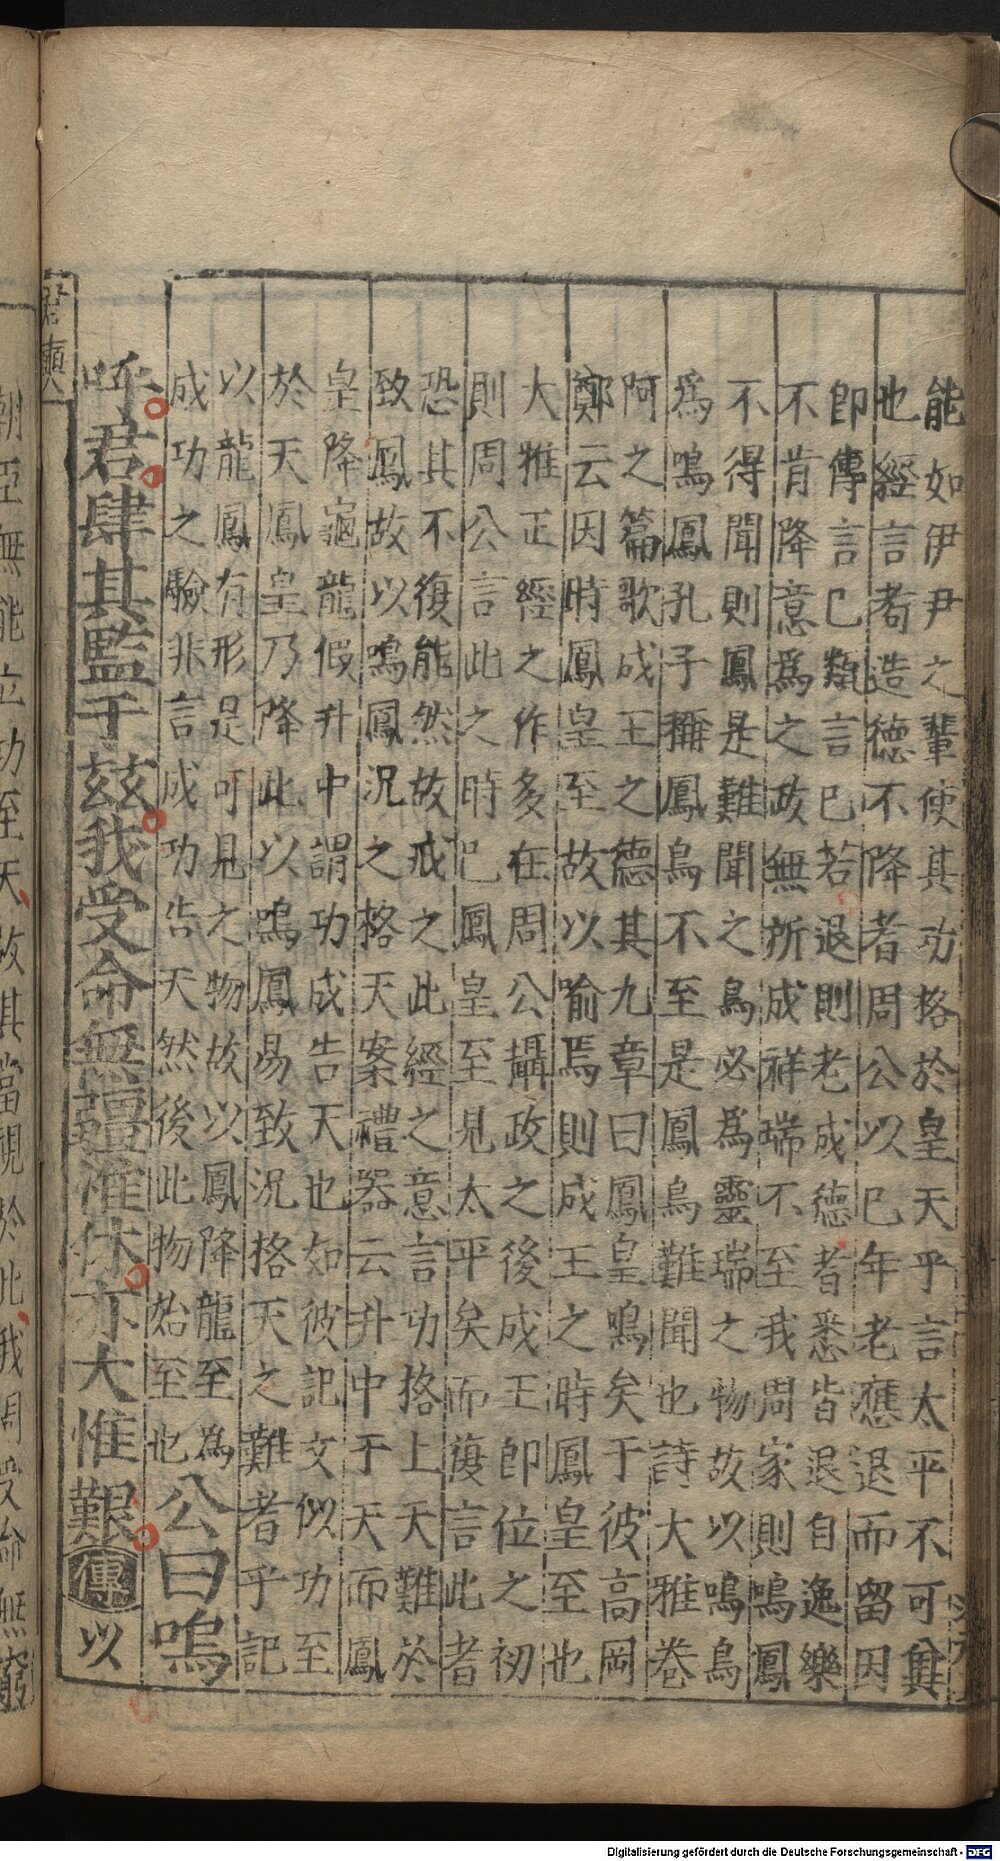 能如伊尹之輩使其功格於皇天乎言太平不可冀
也經言耇造德不降者周公以已年老應退而留因
即傳言已類言已若退則老成德者悉皆退自逸樂
不肯降意爲之政無所成祥瑞不至我周家則鳴鳳
不得聞則鳳是難聞之鳥必爲靈瑞之物故以鳴鳥
爲鳴鳳孔子稱鳳鳥不至是鳳鳥難聞也詩大雅卷
阿之篇歌成王之德其九章曰鳳皇鳴矣于彼高岡
鄭云因時鳳皇至故以喻焉則成王之時鳳皇至也
大雅正經之作多在周公攝政之後成王即位之初
則周公言此之時已鳳皇至見太平矣而復言此者
恐其不復能然故戒之此經之意言功格上天難於
致鳳故以鳴鳳況之格天案禮器云升中于天而鳳
皇降龜龍假升中謂功成告天也如彼記文似功至
於天鳳皇乃降此以鳴鳳易致況格天之難者乎記
以龍鳳有形是可見之物故以鳳降龍至為
成功之驗非言成功告天然後此物始至也
公曰嗚
呼君肆其監于兹我受命無疆惟休亦大惟艱傳以
君奭
朝臣無能立功至天故其當視於此我周受命無窮